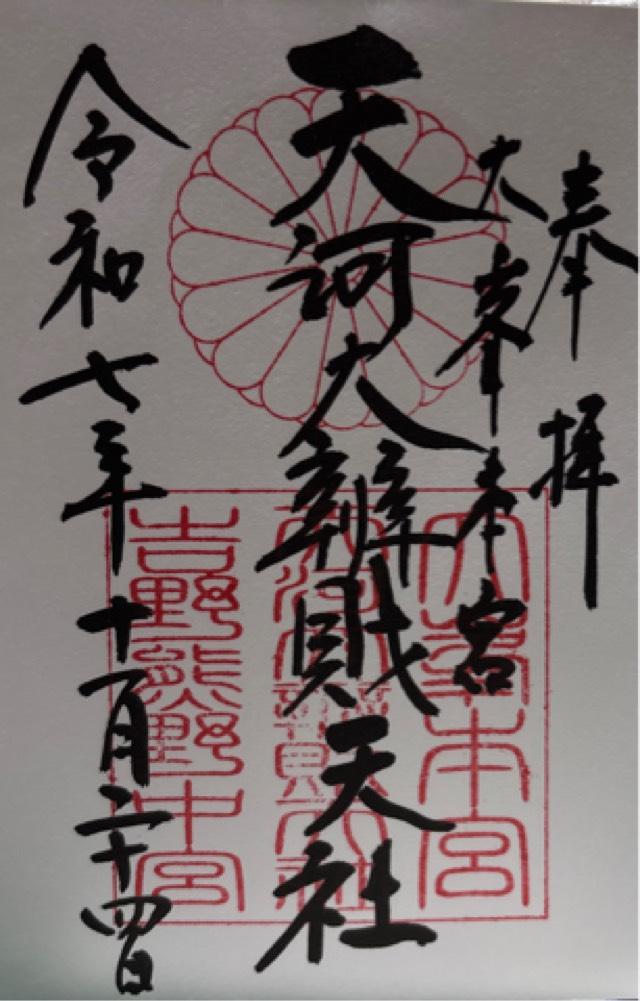 奉拝
大峯本宮
天河大辨財天社
令和七年十一月二十四日
大峯本宮
天河大辨財天社
吉野熊野中宮